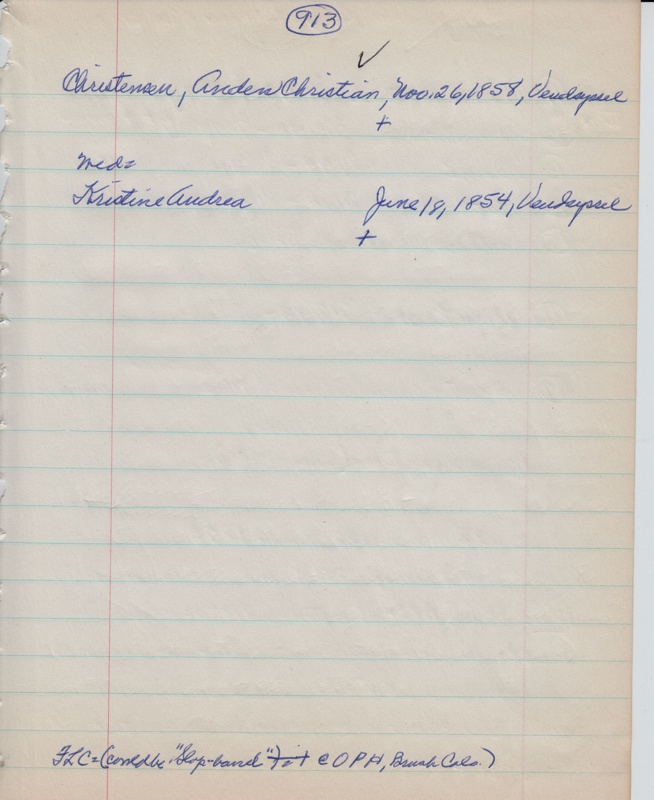 913
✓
Christensen, Anders Christian, Nov. 26, 1858, Vendsyssel
+
med=
Kristine Andrea June 18, 1854, Vendsyssel
+
FLC=(could be " -band") + @ O P H, Brush Colo.)